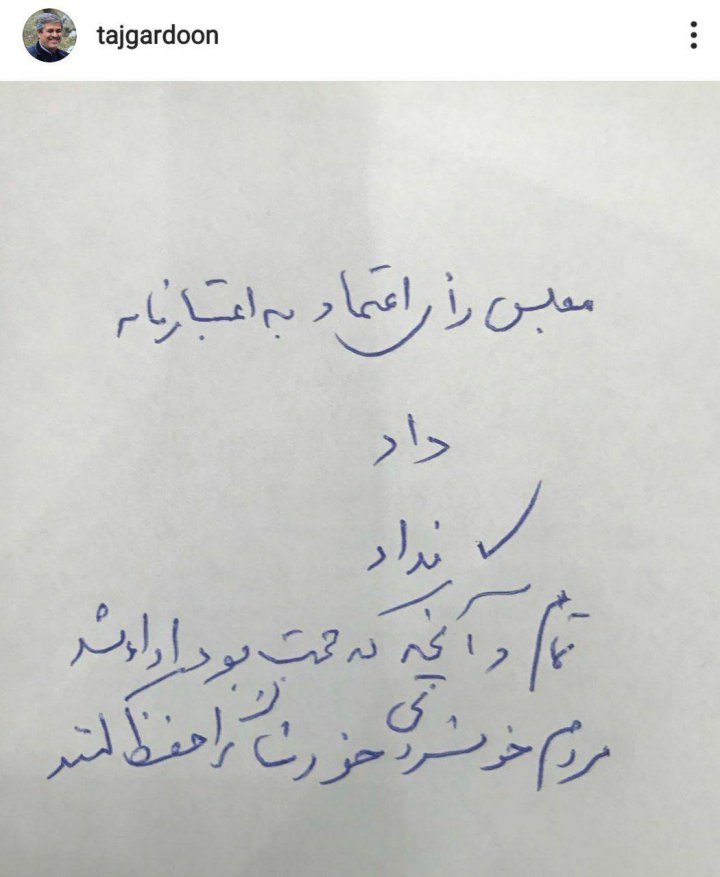 tajgardoon
مجلس رأی اعتماد به اعتبارنامه
داد
نداد
تمام و آنچه که حجت بود ادا شد
مردم خونسردی خودشان را حفظ کنند